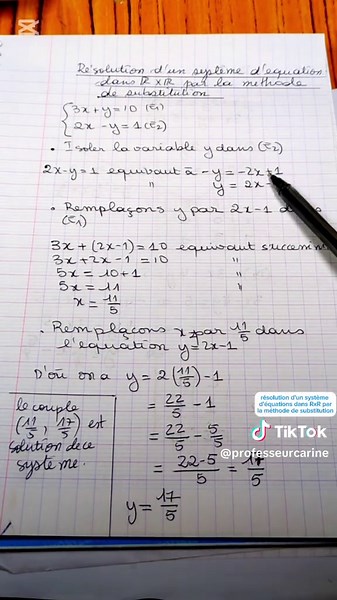 Résolution d'un système d'equation
dans ℝ×ℝ par la méthode
de substitution
{3x + y = 10 (E1)
{2x - y = 1 (E2)
• Isoler la variable y dans (E2)
2x-y=1 equivaut à -y = -2x+1
" y = 2x-
• Remplaçons y par 2x-1 dans
(E1)
3x + (2x-1) = 10 equivaut
3x + 2x - 1 = 10 "
5x = 10+1 "
5x = 11 "
x = 11/5
• Remplaçons x par 11/5 dans
l'equation y = 2x-1
D'où on a y = 2(11/5) - 1
= 22/5 - 1
= 22/5 - 5/5
= 22-5/5 = 17/5
y = 17/5
le couple
(11/5, 17/5) est
solution de ce
système.
résolution d'un système
d'équations dans RxR par
la méthode de substitution
TikTok
@professeurcarine